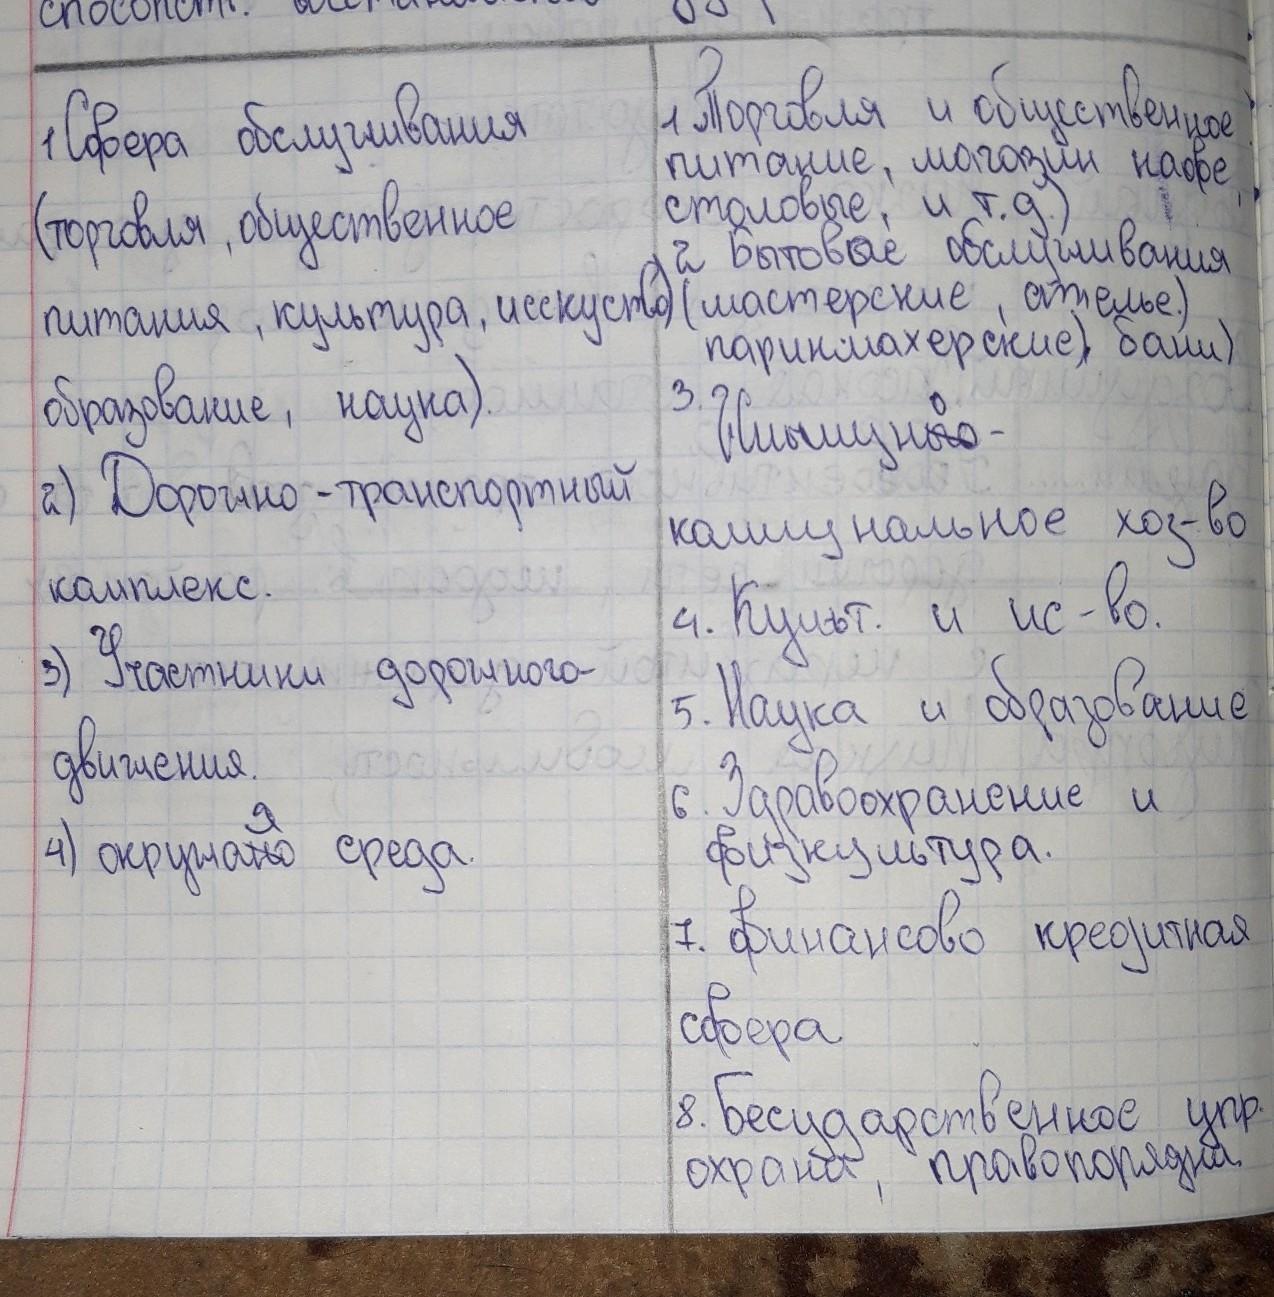 способст.
1 Сфера обслуживания
(торговля, общественное
питания, культура, исскуство)
образование, наука).
2) Дорожно-транспортный
комплекс.
3) Участники дорожного-
движения.
4) окружа я среда.
1 Торговля и общественное
питание, магазин кафе,
столовые, и т.д.)
2 Бытовые обслуживания
(мастерские, ателье.)
парикмахерские), бани)
3. Жилищно-
коммунальное хоз-во
4. Культ. и ис-во.
5. Наука и образование
6. Здравоохранение и
физкультура.
7. Финансово кредитная
сфера
8. Бесударственное упр.
охрана, правопорядка.